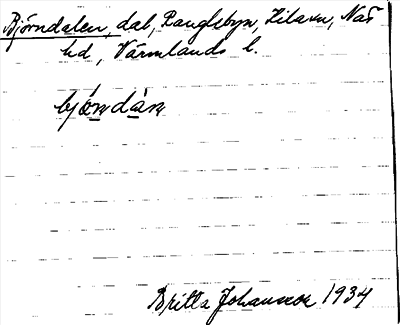 Björndalen, dal, Ranglebyn, Kilarn, Näs
hd, Värmlands l.
bjö́ṇdàṇ
Britta Johansson 1934